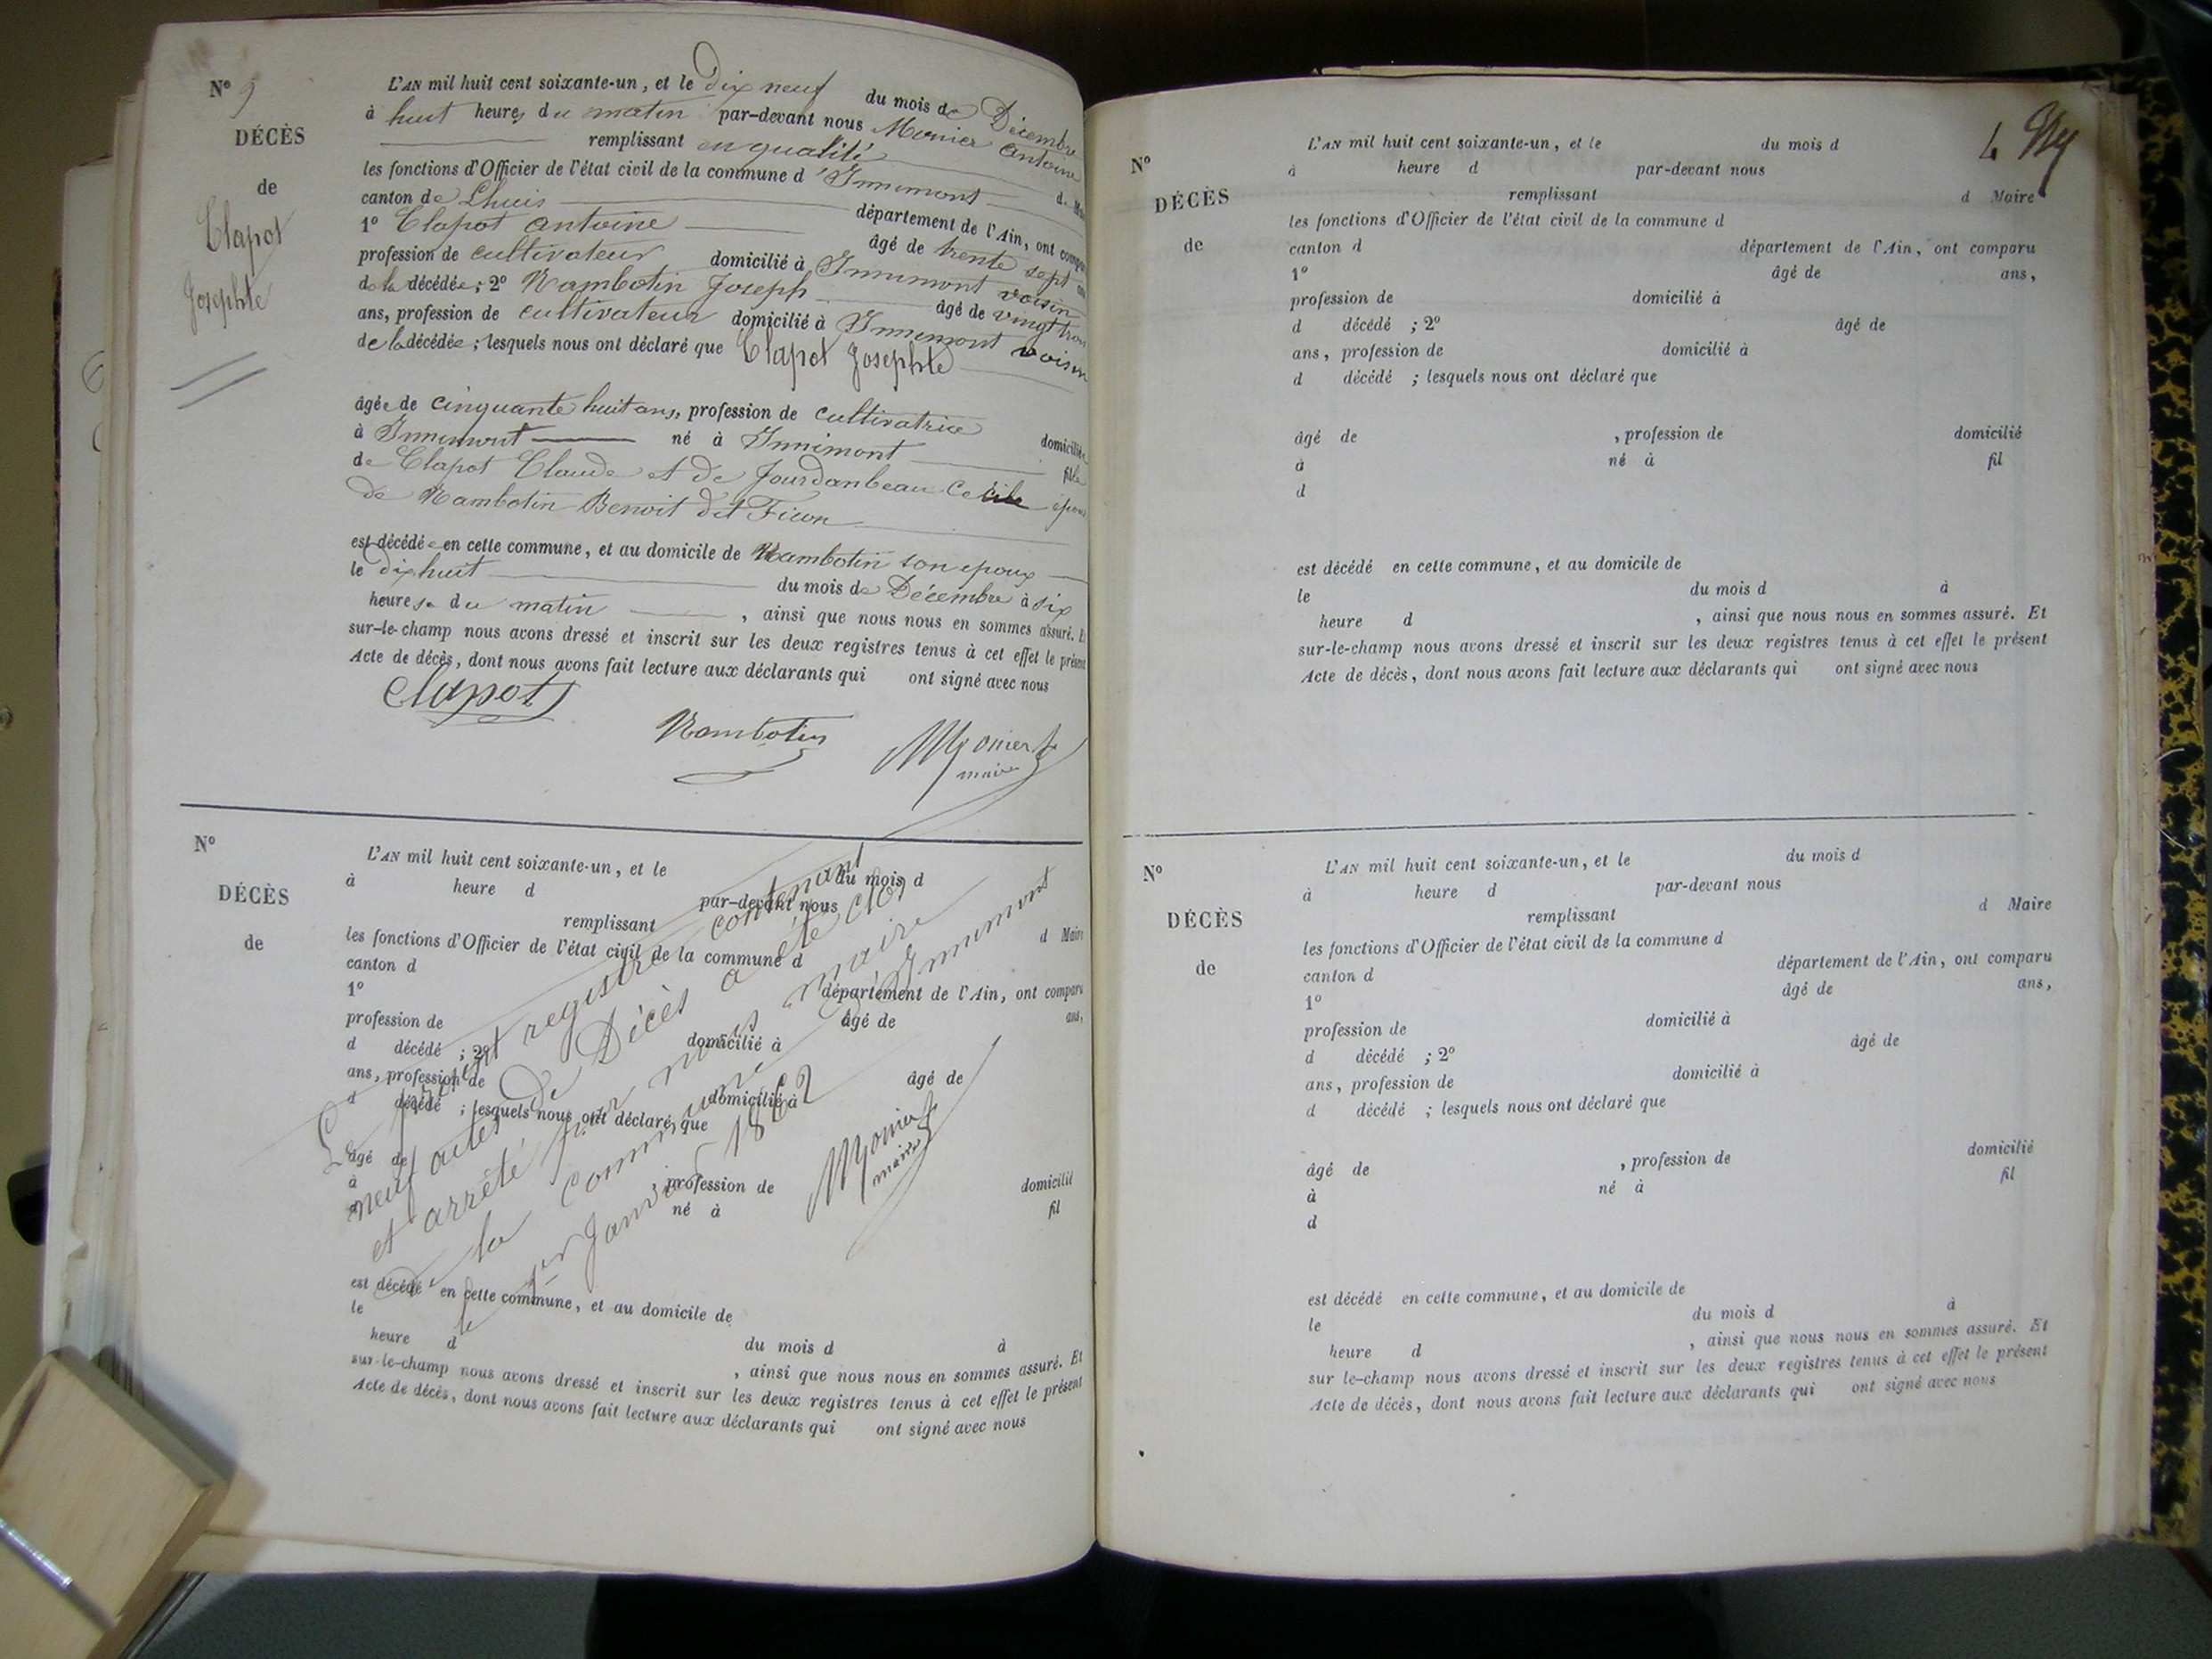 N° 9
DÉCÈS
de
Clapot
Josephte
L'AN mil huit cent soixante-un, et le Dix neuf du mois de Décembre
à huit heures du matin par-devant nous Monier Antoine
remplissant en qualité d Ma
les fonctions d'Officier de l'état civil de la commune d'Innimont
canton de Lhuis département de l'Ain, ont compa
1° Clapot Antoine âgé de trente sept
profession de cultivateur domicilié à Innimont voisin
de la décédée ; 2° Rambotin Joseph âgé de vingt trois
ans, profession de cultivateur domicilié à Innimont voisin
de la décédée ; lesquels nous ont déclaré que Clapot Josephte
âgée de cinquante huit ans, profession de cultivatrice domiciliée
à Innimont né à Innimont fille
de Clapot Claude et de Jourdanbeau Cecile épouse
de Rambotin Benoit dit
est décédée en cette commune, et au domicile de Rambotin son epoux
le dix huit du mois de Décembre à six
heures du matin , ainsi que nous nous en sommes assuré. Et
sur-le-champ nous avons dressé et inscrit sur les deux registres tenus à cet effet le présent
Acte de décès, dont nous avons fait lecture aux déclarants qui ont signé avec nous
Clapot
Rambotin
Monier
maire
N°
DÉCÈS
de
L'AN mil huit cent soixante-un, et le du mois d
à heure d par-devant nous
remplissant d Maire
les fonctions d'Officier de l'état civil de la commune d
canton d département de l'Ain, ont comparu
1° âgé de ans,
profession de domicilié à
d décédé ; 2° âgé de
ans, profession de domicilié à
d décédé ; lesquels nous ont déclaré que
âgé de , profession de domicilié
à né à fil
d
est décédé en cette commune, et au domicile de
le du mois d à
heure d , ainsi que nous nous en sommes assuré. Et
sur-le-champ nous avons dressé et inscrit sur les deux registres tenus à cet effet le présent
Acte de décès, dont nous avons fait lecture aux déclarants qui ont signé avec nous
Le présent registre contenant
neuf actes de Décès a été clos
et arrêté par nous maire
de la commune d'Innimont
le 1er Janvier 1862
Monier
maire
4
N°
DÉCÈS
de
L'AN mil huit cent soixante-un, et le du mois d
à heure d par-devant nous
remplissant d Maire
les fonctions d'Officier de l'état civil de la commune d
canton d département de l'Ain, ont comparu
1° âgé de ans,
profession de domicilié à
d décédé ; 2° âgé de
ans, profession de domicilié à
d décédé ; lesquels nous ont déclaré que
âgé de , profession de domicilié
à né à fil
d
est décédé en cette commune, et au domicile de
le du mois d à
heure d , ainsi que nous nous en sommes assuré. Et
sur-le-champ nous avons dressé et inscrit sur les deux registres tenus à cet effet le présent
Acte de décès, dont nous avons fait lecture aux déclarants qui ont signé avec nous
N°
DÉCÈS
de
L'AN mil huit cent soixante-un, et le du mois d
à heure d par-devant nous
remplissant d Maire
les fonctions d'Officier de l'état civil de la commune d
canton d département de l'Ain, ont comparu
1° âgé de ans,
profession de domicilié à
d décédé ; 2° âgé de
ans, profession de domicilié à
d décédé ; lesquels nous ont déclaré que
âgé de , profession de domicilié
à né à fil
d
est décédé en cette commune, et au domicile de
le du mois d à
heure d , ainsi que nous nous en sommes assuré. Et
sur le-champ nous avons dressé et inscrit sur les deux registres tenus à cet effet le présent
Acte de décès, dont nous avons fait lecture aux déclarants qui ont signé avec nous